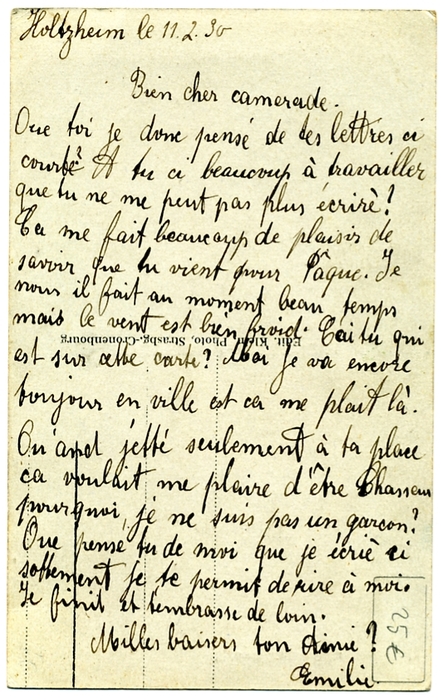 Holtzheim le 11.2.30
Bien cher camerade.
Que toi je donc pensé de tes lettres ci
courte? A tu ci beaucoup à travailler
que tu ne me peut pas plus écrire?
Ca me fait beaucoup de plaisir de
savoir que tu vient pour Pâque. Je
nous il fait au moment beau temps
mais le vent est bien froid. Sai tu qui
est sur cette carte? Moi je va encore
bonjour en ville est ca me plait là.
Qu'and jetté seulement à ta place
ca voulait me plaire d'être Chasseur
pourquoi, je ne suis pas un garçon?
Que pense tu de moi que je écrié ci
sottement je te permit de rire à moi.
Je finit et t'embrasse de loin.
Milles baisers ton Aimie?
Emilie
Edit. Klein, Photo, Strasbg.-Cronenbourg
25 €